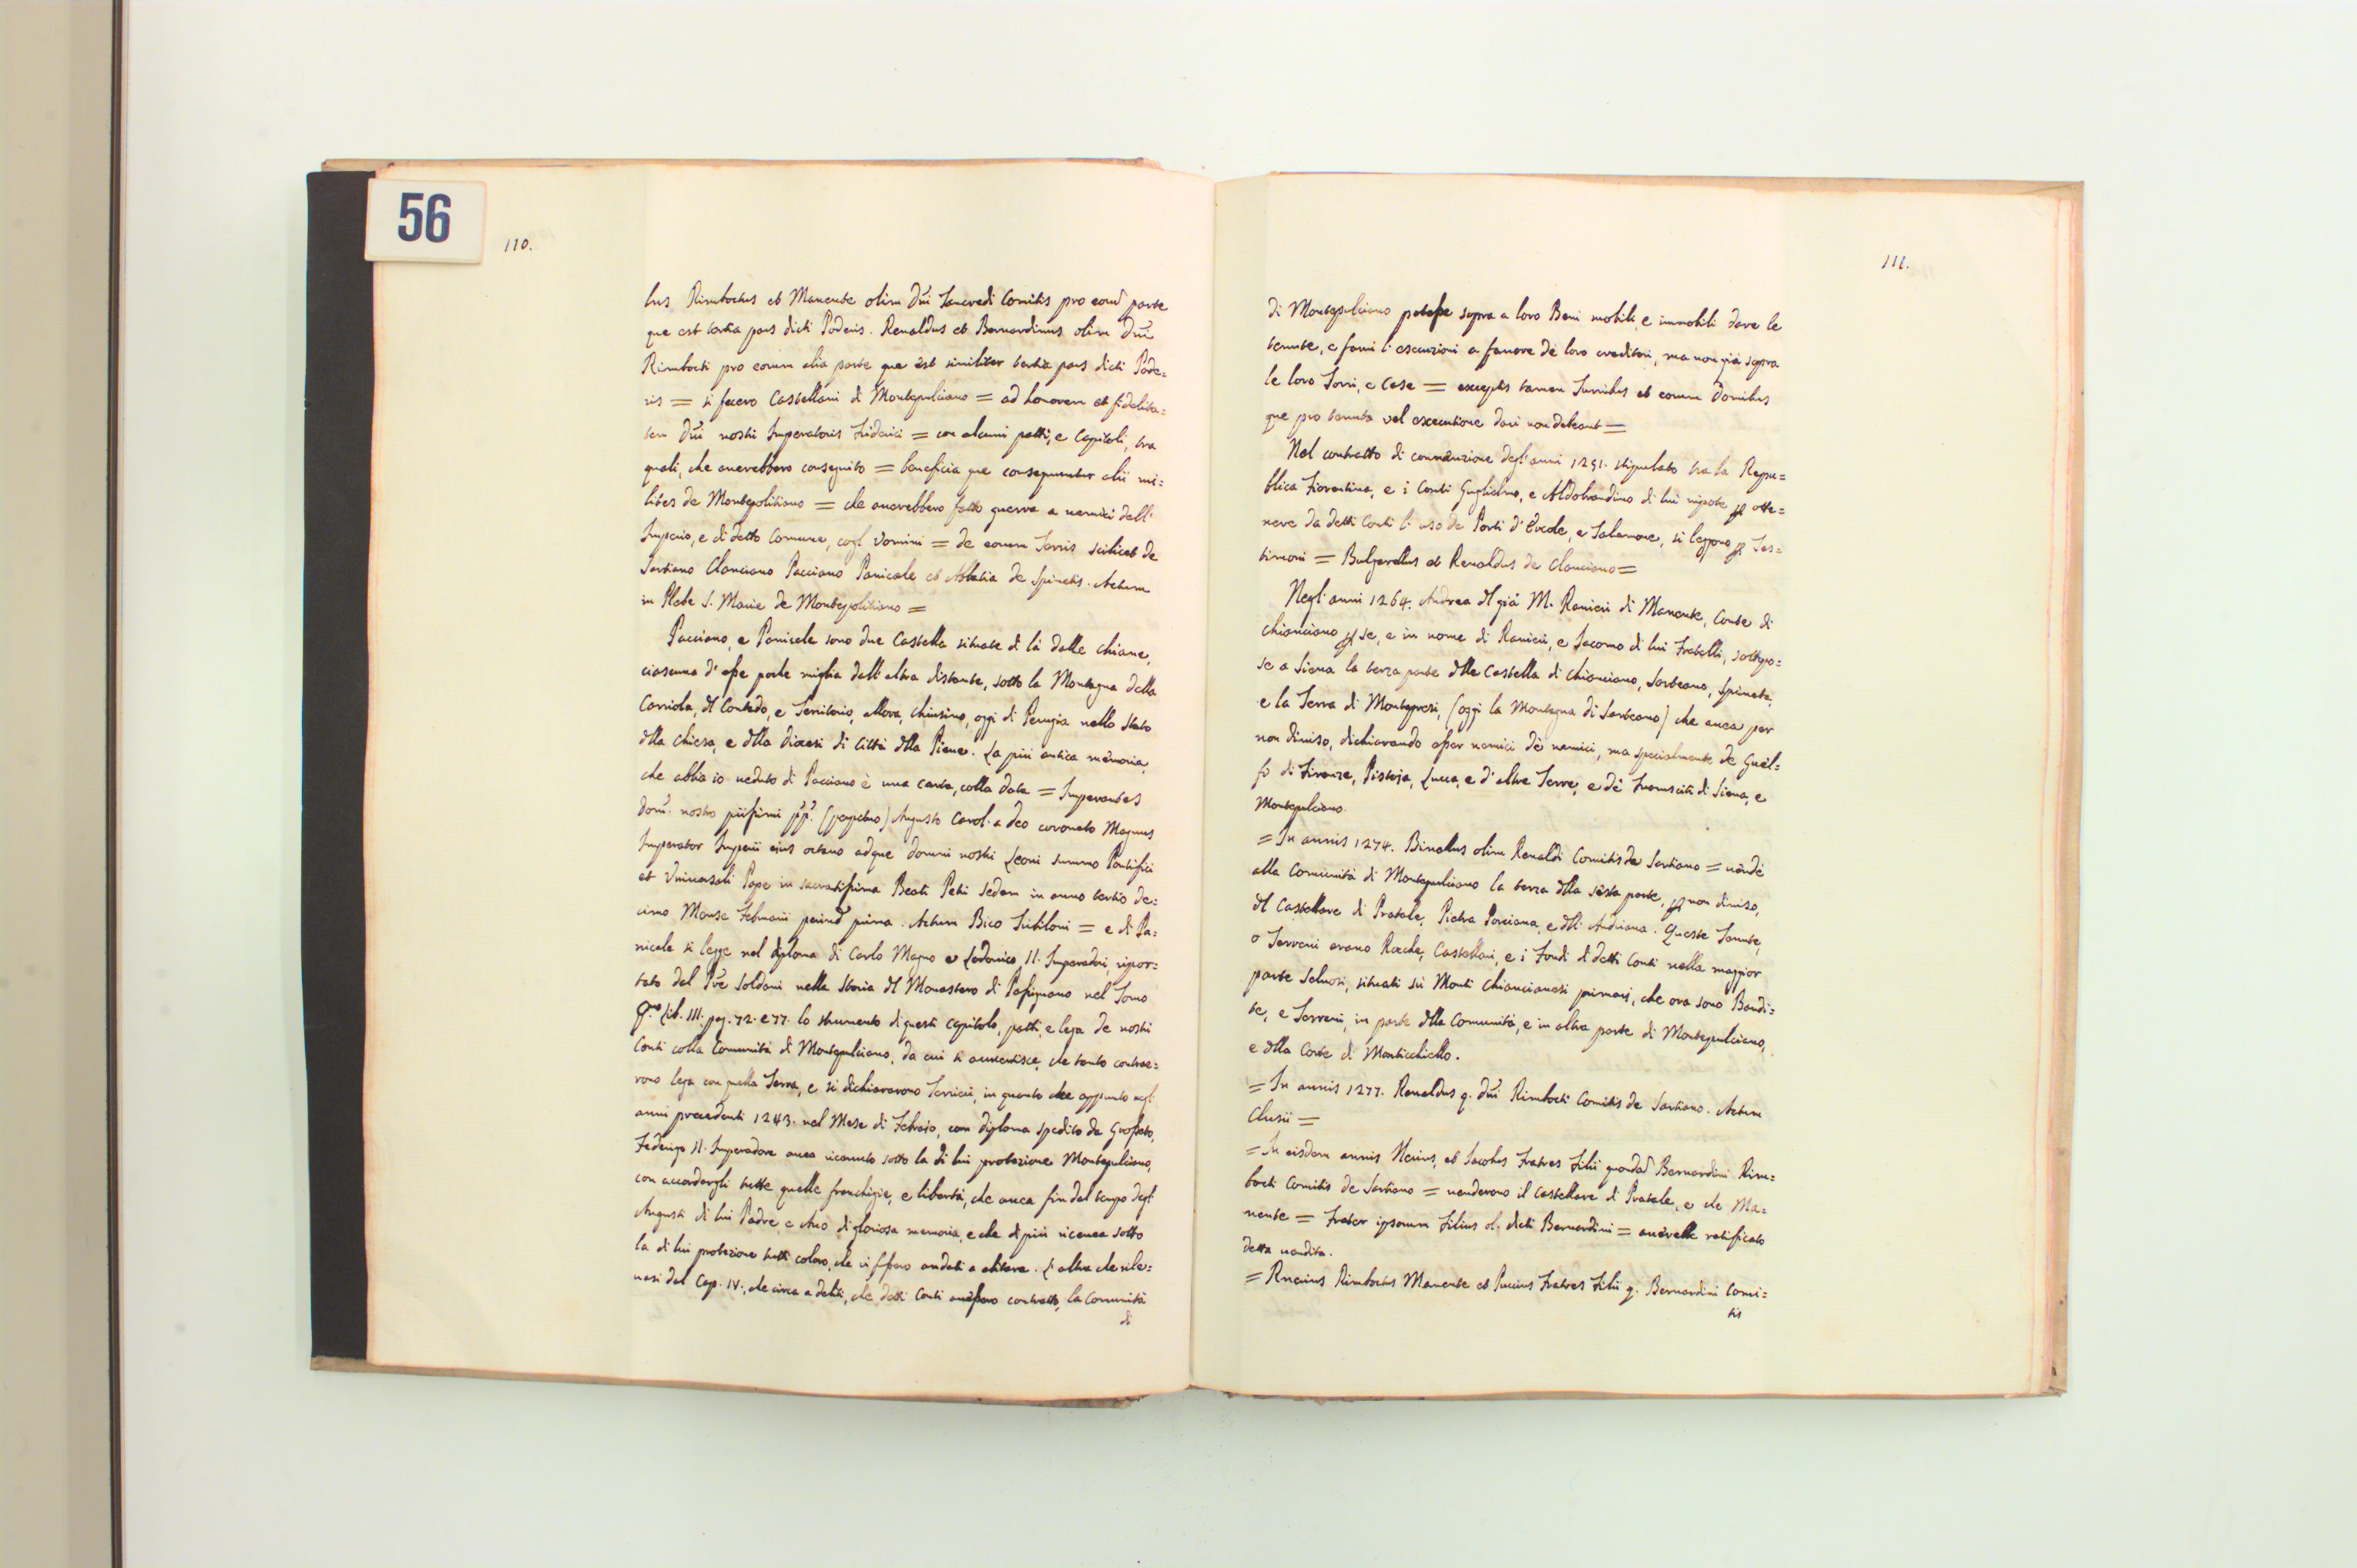 56
110.
tus Rimboctus et Manente olim Dni Tancredi Comitis pro eoru parte
que est tertia pars dicti Poderis. Renaldus et Bernardinus olim Dni
Rimbocti pro eorum alia parte que est similiter tertia pars dicti Pode=
ris = si fecero Castellani di Montepulciano = ad honorem et fidelita=
tem Dni nostri Imperatoris Friderici = con alcuni patti, e Capitoli, tra
quali, che averebbero conseguito = beneficia que consequuntur alii mi=
lites de Montepolitiano = che averebbero fatto guerra a nemici dell'
Imperio, e di detto Comune, cogl' Vomini = de eorum Terris scilicet de
Sartiano Clanciano Pacciano Panicale et Abbatia de Spinetis. Actum
in Plebe S. Marie de Montepolitiano =
Pacciano, e Panicale sono due Castella situate di là dalle Chiane,
ciascuna d' esse poche miglia dall' altra distante, sotto la Montagna della
Carriola, dl Contado, e Territorio, allora, Chiusino, oggi di Perugia nello Stato
dlla Chiesa, e dlla diocesi di Città dlla Pieve. La più antica memoria,
che abbia io veduto di Pacciano è una carta, colla data = Imperantes
dom. nostro piissimi pp. (perpetuo) Augusto Carol. a Deo coronato Magnus
Imperator Imperii eius octavo adque domni nostri Leoni summo Pontifici
et Vniversali Pape in sacratissima Beati Petri Sedem in anno tertio de=
cimo Mense Februarii prima. Actum Bico = e di Pa=
nicale si legge nel diploma di Carlo Magno e Lodovico II. Imperadori, ripor=
tato dal Pre Soldani nella Storia dl Monastero di Passignano nel Tomo
Lib. III. pag. 72. e 77. lo strumento di questi capitoli, patti, e lega de nostri
Conti colla Comunità di Montepulciano, da cui si avvertisce, che tanto contrae=
rono lega con quella Terra, e si dichiararono in quanto che appunto negl'
anni precedenti 1243. nel Mese di Febraio, con diploma spedito da Grosseto,
Federigo II. Imperadore avea ricevuto sotto la di lui protezione Montepulciano,
con accordargli tutte quelle franchigie, e libertà, che avea fin dal tempo degl'
Augusti di lui Padre, e Avo di gloriosa memoria, e che di più riceveva sotto
la di lui protezione tutti coloro, che vi fssero andati a abitare. L' altra che rile=
vasi dal Cap. IV., che circa a debiti, che detti Conti avessero contratto, la Comunità
di
111.
di Montepulciano potesse sopra a loro Beni mobili, e immobili dare le
tenute, e farvi l' esecuzioni a favore dè loro creditori, ma non già sopra
le loro Torri, e Case = exceptis tamen Turribus et eorum domibus
que pro tenuta vel executione dari non debeant =
Nel contratto di convenzione degl' anni 1251. stipulato tra la Repu=
blica Fiorentina, e i Conti Guglielmo, e Aldobrandino di lui nipote p otte=
nere da detti Conti l' uso de Porti d' Ercole, e Talamone, si leggono p Tes=
timoni = Bulgarellus et Renaldus de Clanciano =
Negl' anni 1264. Andrea dl già M. Ranieri di Manente, Conte di
Chianciano p se, e in nome di Ranieri, e Iacomo di lui Fratelli, sottopo=
se a Siena la terza parte dlle Castella di Chianciano, Sarteano, Spineta,
e la Terra di Montepresi, (oggi la Montagna di Sarteano) che avea per
non diviso, dichiarando esser nemici dè nemici, ma specialmente de Guel=
fi di Firenze, Pistoja, Lucca, e d' altre Terre, e dè Fuorusciti di Siena, e
Montepulciano.
= In annis 1274. Binellus olim Renaldi Comitis de Sartiano = vendè
alla Comunità di Montepulciano la terza dlla sesta parte, p non diviso,
dl Castellare di Pratale, Pietra Porciana, e dll' Ardiana. Queste Tenute,
o Terreni erano Rocche, Castellari, e i Fondi di detti Conti nella maggior
parte Selvosi, situati sù Monti Chiancianesi primari, che ora sono Bandi=
te, e Terreni, in parte dlla Comunità, e in altra parte di Montepulciano,
e dlla Corte di Monticchiello.
= In annis 1277. Renaldus q. dni Rimbocti Comitis de Sartiano. Actum
Clusii =
= In eisdem annis Nerius, et Iacobus Fratres Filii quondā Bernardini Rim=
bocti Comitis de Sartiano = venderono il Castellare di Pratale, e che Ma=
nente = Frater ipsorum Filius ol. dicti Bernardini = averelle ratificato
detta vendita.
= Rnerius Rimboctus Manente et Puccius Fratres Filii q. Bernardini Comi=
tis